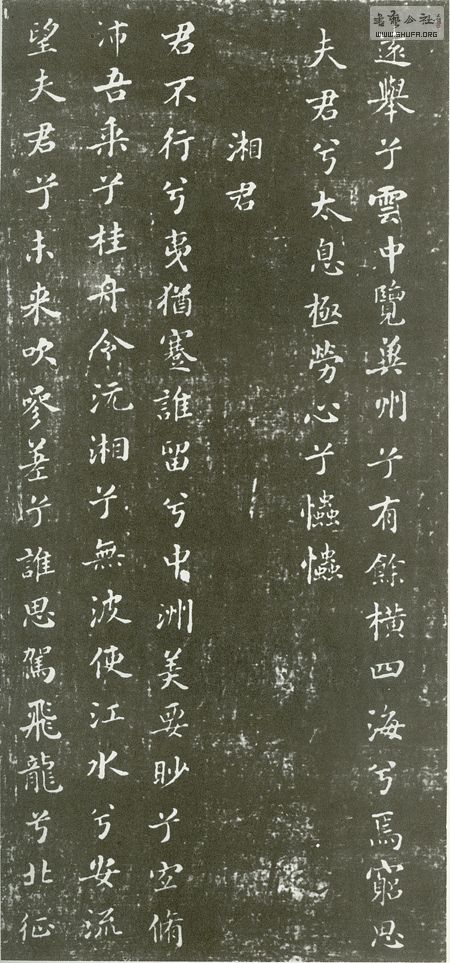 遠舉兮雲中覽冀州兮有餘橫四海兮焉窮思
夫君兮太息極勞心兮𢥞𢥞
湘君
君不行兮夷猶蹇誰留兮中洲美要眇兮宜脩
沛吾乘兮桂舟令沅湘兮無波使江水兮安流
望夫君兮未来吹參差兮誰思駕飛龍兮北征
書藝公社
WWW.SHUFA.ORG